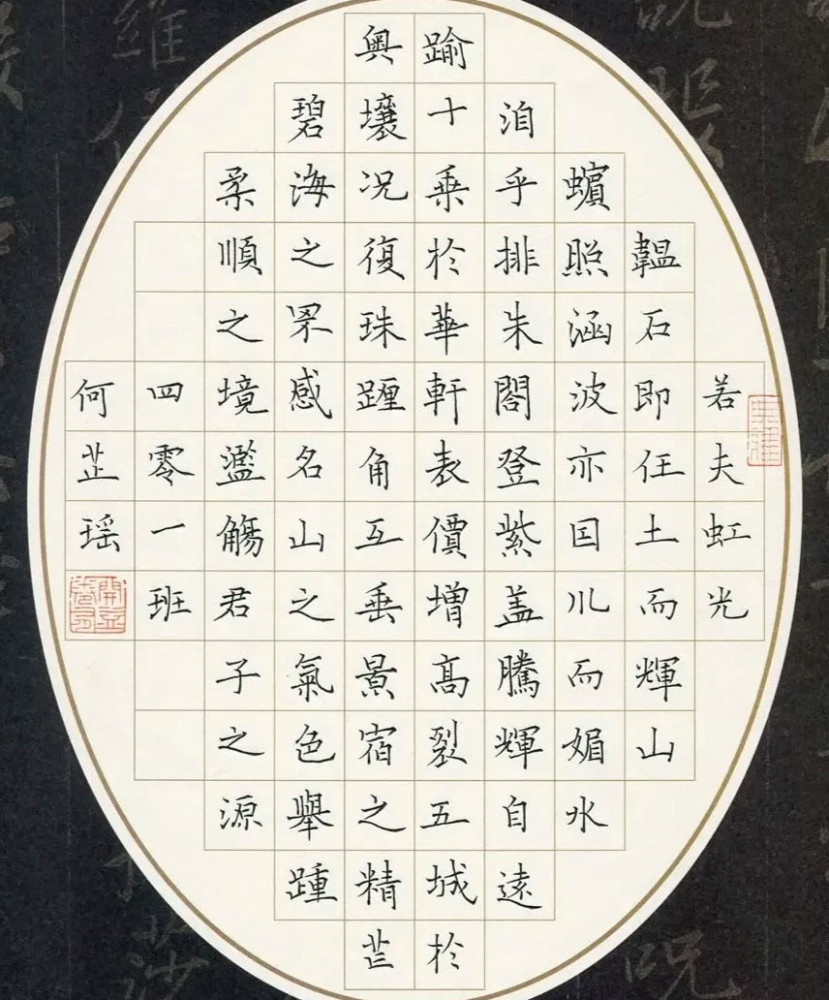 若夫虹光
韞石即任土而輝山
蠙照涵波亦因川而媚水
洎乎排朱閣登紫盖騰輝自遠
踰十乗於華軒表價增髙裂五城於
奥壤况復珠躔角互垂景宿之精芒
碧海之罘感名山之氣色舉踵
柔順之境濫觴君子之源
四零一班
何芷瑶